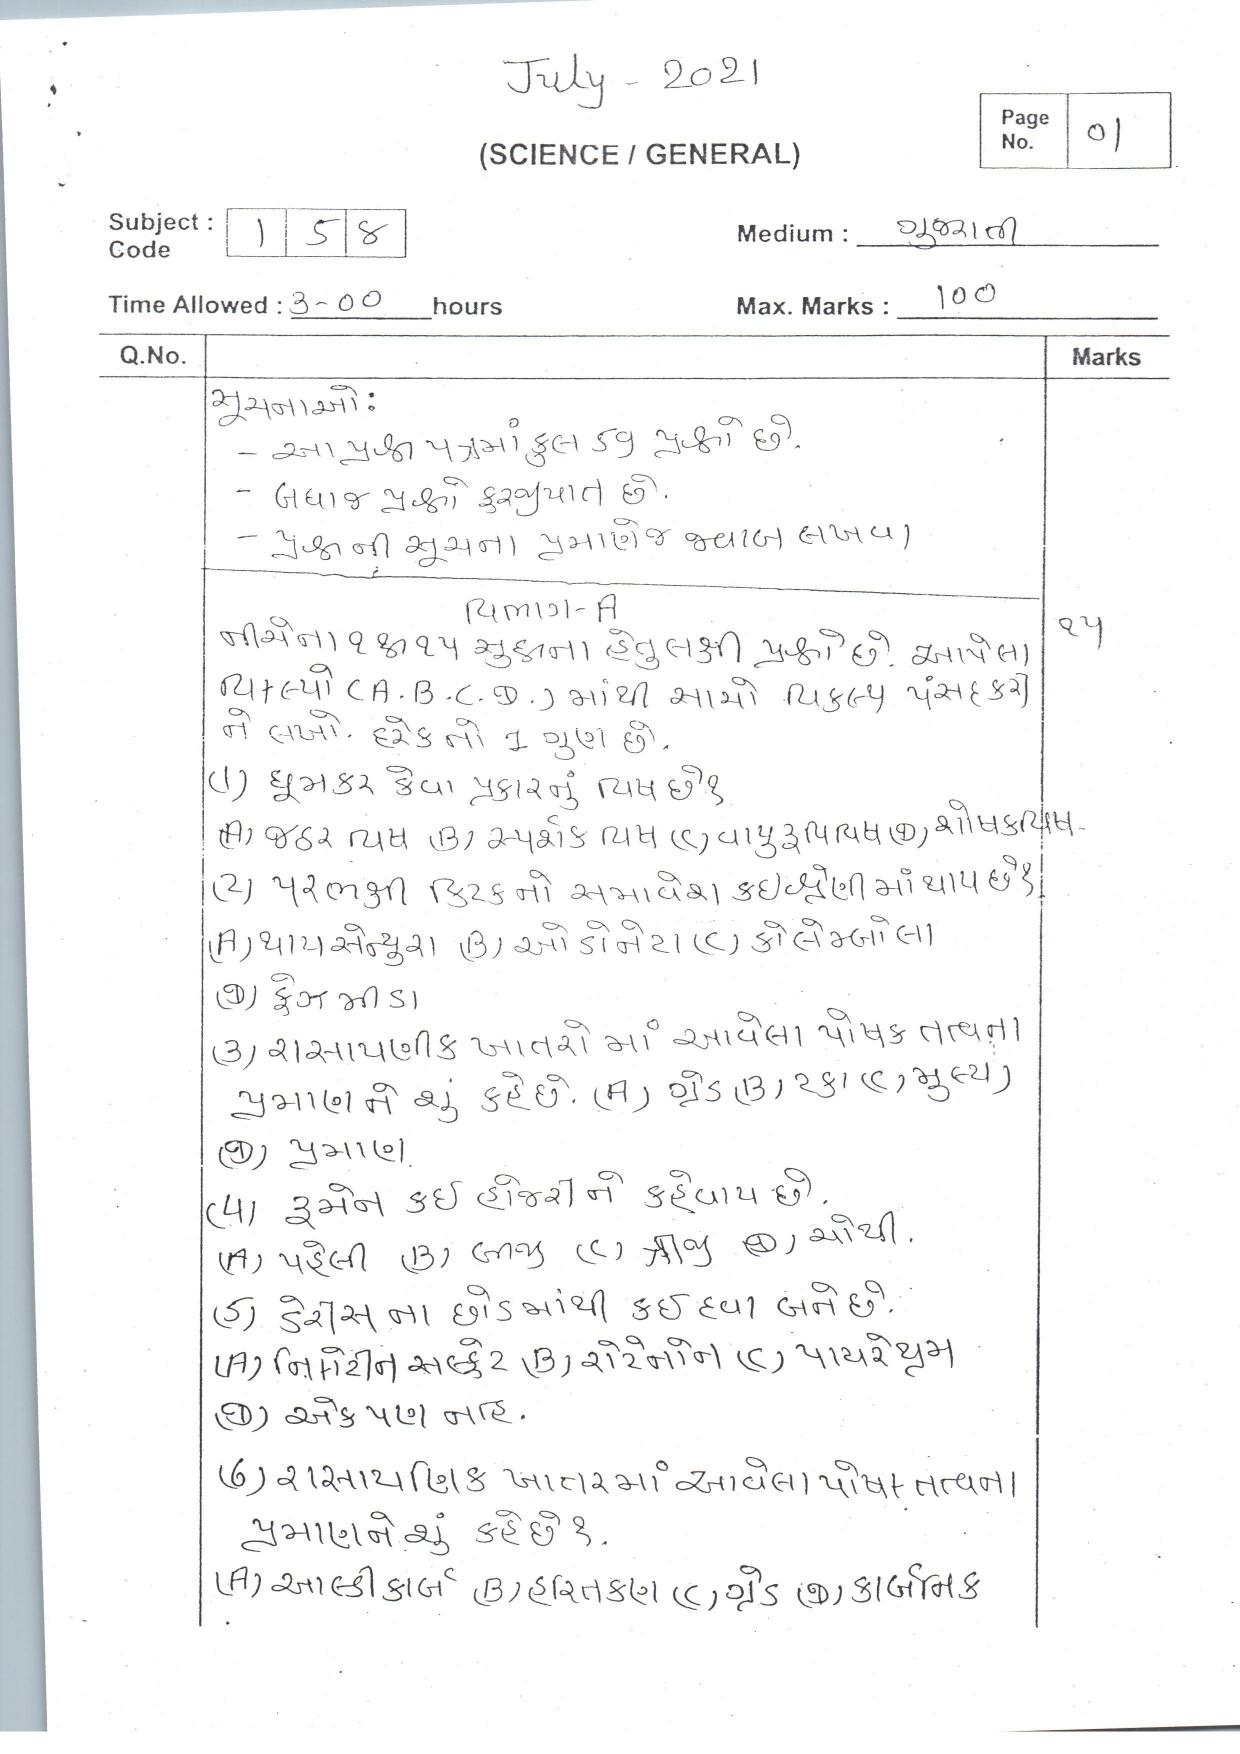 July - 2021
Page No. 01
(SCIENCE / GENERAL)
Subject : Code 1 5 8
Medium : ગુજરાતી
Time Allowed : 3-00 hours
Max. Marks : 100
Q.No. Marks
સૂચનાઓ:
- આ પ્રશ્ન પત્રમાં કુલ ૬૧ પ્રશ્નો છે.
- બધાજ પ્રશ્નો ફરજીયાત છે.
- પ્રશ્નની સૂચના પ્રમાણેજ જવાબ લખવા
વિભાગ-A
નીચેના ૧ થી ૧૫ સુધીના હેતુલક્ષી પ્રશ્નો છે. આપેલા ૧૫
વિકલ્પો (A.B.C.D.) માંથી સાચો વિકલ્પ પંસદ કરી
ને લખો. દરેકનો 1 ગુણ છે.
(1) ધૂમકર કેવા પ્રકારનું વિષ છે?
(A) જઠર વિષ (B) સ્પર્શક વિષ (C) વાયુરૂપ વિષ (D) શોષક વિષ.
(2) પરભક્ષી કિટકનો સમાવેશ કઇ શ્રેણીમાં થાય છે?
(A) થાયસેન્યુરા (B) ઓડોનેટા (C) કોલેમ્બોલા
(D) ફેઝમીડા
(3) રાસાયણીક ખાતરો માં આવેલા પોષક તત્વના
પ્રમાણને શું કહે છે. (A) ગ્રેડ (B) ટકા (C) મુલ્ય
(D) પ્રમાણ
(4) રૂમેન કઈ હોજરી ને કહેવાય છે.
(A) પહેલી (B) બીજી (C) ત્રીજી (D) ચોથી.
(5) ડેરીસ ના છોડમાંથી કઈ દવા બને છે.
(A) નિકોટીન સલ્ફેટ (B) રોટેનોન (C) પાયરેથ્રમ
(D) એક પણ નહિ.
(6) રાસાયણિક ખાતરમાં આવેલા પોષક તત્વના
પ્રમાણને શું કહે છે?.
(A) આલ્કીકાર્બ (B) હરિતકણ (C) ગ્રેડ (D) કાર્બનિક